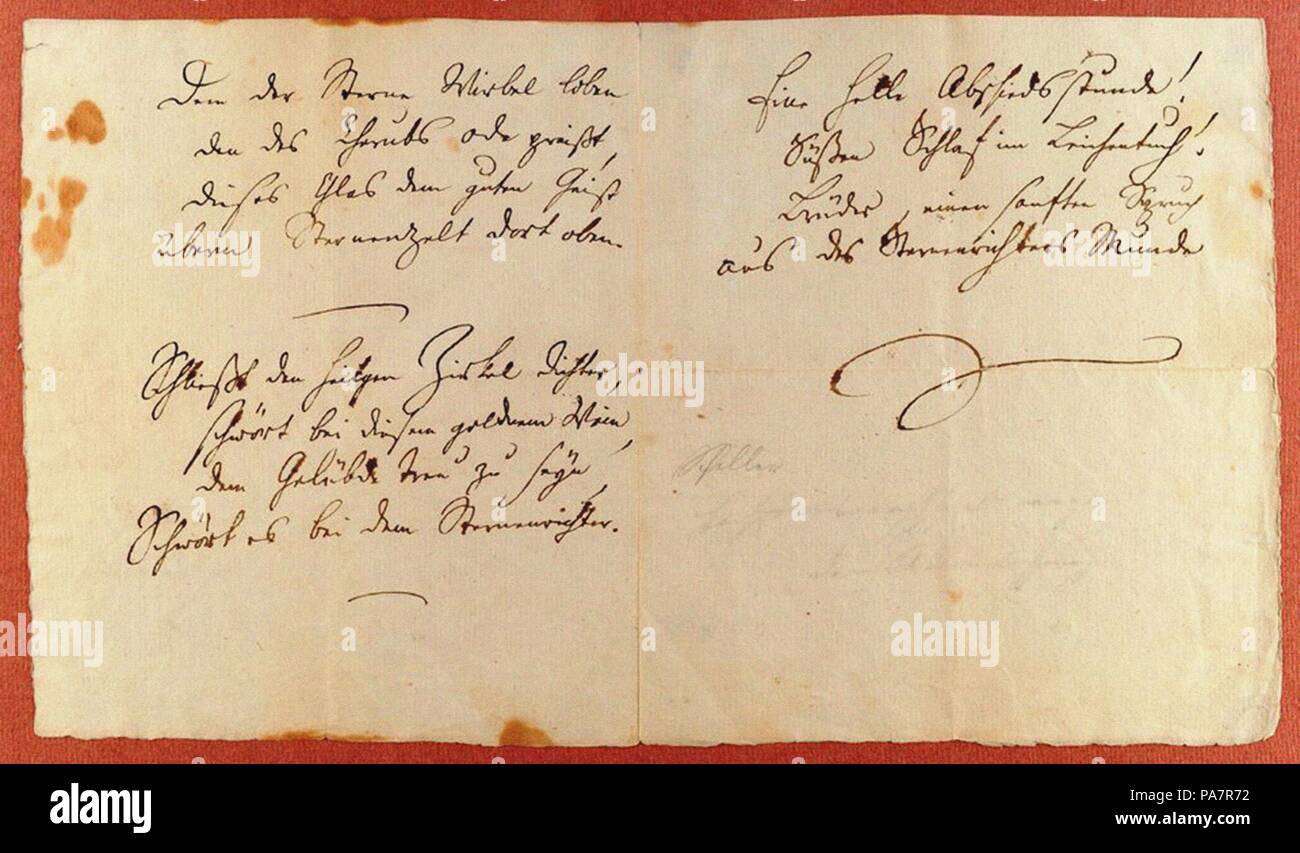 Dem der Sterne Wirbel loben
den des Cherubs Ode preißt,
dieses Glas dem guten Geist
überm Sternenzelt dort oben.
Schließt den heilgen Zirkel dichter,
schwört bei diesem goldnem Wein,
dem Gelübde treu zu seyn,
Schwört es bei dem Sternenrichter.
Eine helle Abschiedsstunde!
Süßen Schlaf im Leichentuch!
Brüder, einen sanften Spruch
aus des Sternenrichters Munde
Schiller
alamy stock photo
alamy
alamy
Image ID: PA7R72
www.alamy.com